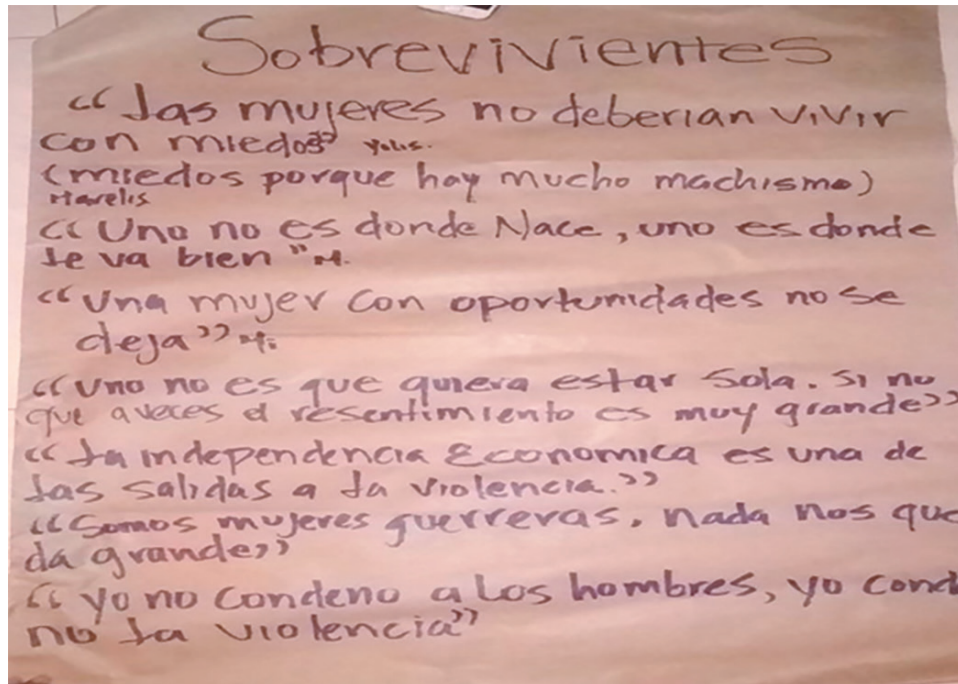 Sobrevivientes
“Las mujeres no deberian vivir
con miedos” Yolis.
(miedos porque hay mucho machismo)
Marelis
“Uno no es donde Nace, uno es donde
le va bien” M.
“Una mujer con oportunidades no se
deja” M.
“Uno no es que quiera estar sola. si no
que a veces el resentimiento es muy grande”
“La independencia Economica es una de
las salidas a la violencia.”
“Somos mujeres guerreras, nada nos que
da grande”
“yo no condeno a los hombres, yo cond
no la violencia”